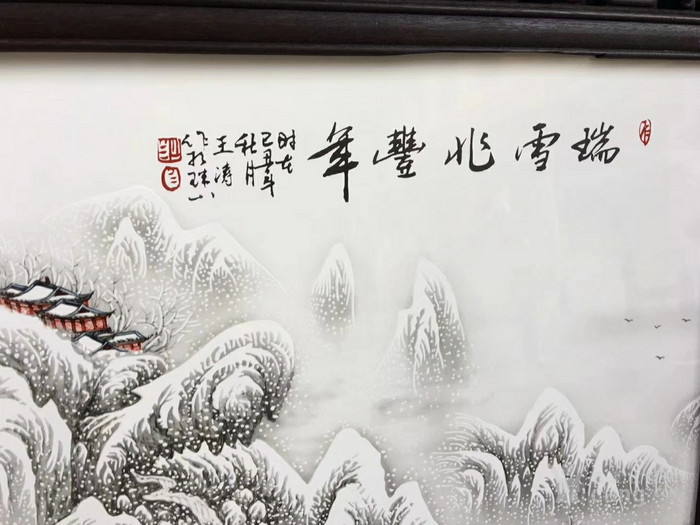 瑞雪兆豐年
时在
己丑年
秋月
王涛
作於珠山